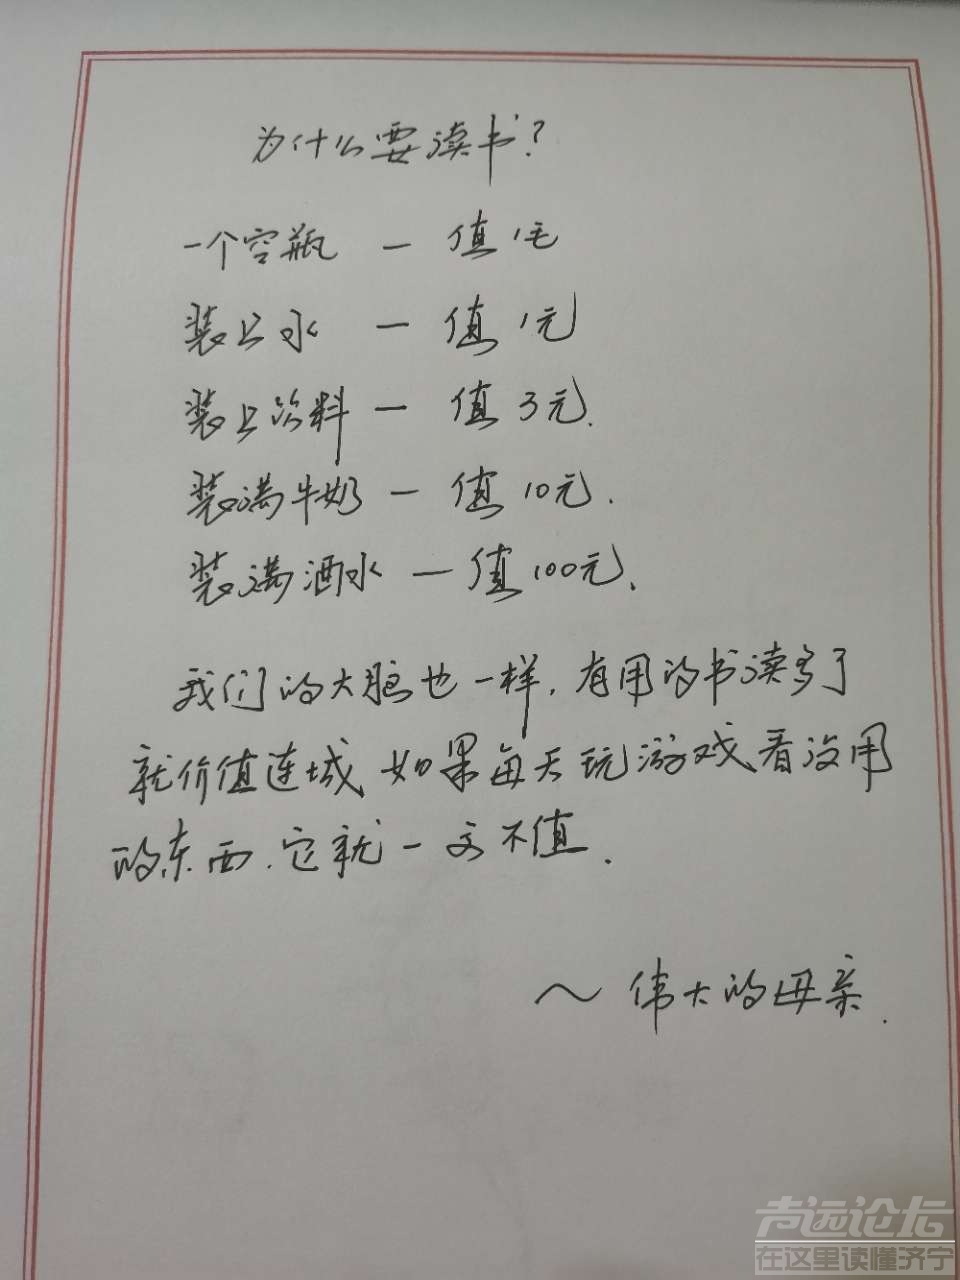 为什么要读书?
一个空瓶 — 值1毛
装上水 — 值1元
装上饮料 — 值3元.
装满牛奶 — 值10元.
装满酒水 — 值100元.
我们的大脑也一样,有用的书读多了
就价值连城,如果每天玩游戏看没用
的东西.它就一文不值.
~伟大的母亲.
声远论坛
在这里读懂济宁